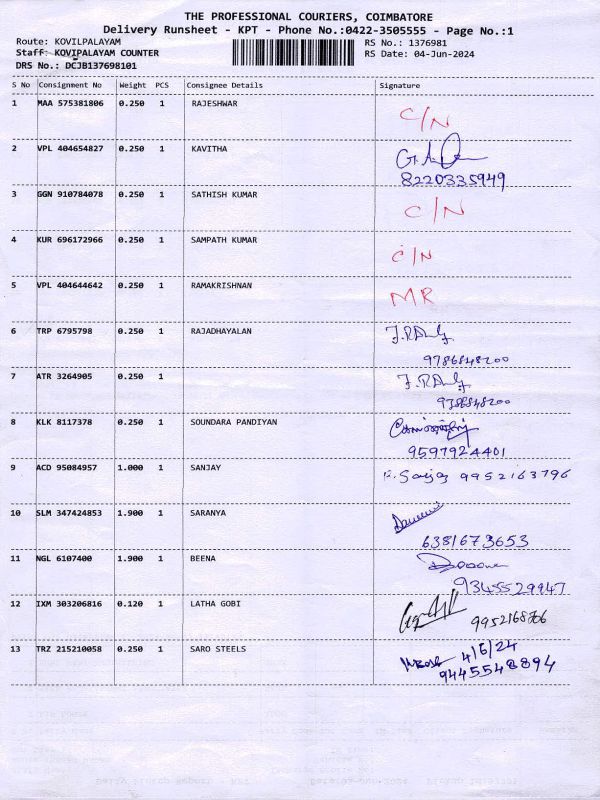 THE PROFESSIONAL COURIERS, COIMBATORE
Delivery Runsheet - KPT - Phone No.:0422-3505555 - Page No.:1
Route: KOVILPALAYAM RS No.: 1376981
Staff: KOVIPALAYAM COUNTER RS Date: 04-Jun-2024
DRS No.: DCJB137698101
S No Consignment No Weight PCS Consignee Details Signature
1 MAA 575381806 0.250 1 RAJESHWAR C/N
2 VPL 404654827 0.250 1 KAVITHA
8220335949
3 GGN 910784078 0.250 1 SATHISH KUMAR C/N
4 KUR 696172966 0.250 1 SAMPATH KUMAR C/N
5 VPL 404644642 0.250 1 RAMAKRISHNAN MR
6 TRP 6795798 0.250 1 RAJADHAYALAN
9786848200
7 ATR 3264905 0.250 1
9786848200
8 KLK 8117378 0.250 1 SOUNDARA PANDIYAN
9597924401
9 ACD 95084957 1.000 1 SANJAY 9952163796
10 SLM 347424853 1.900 1 SARANYA
6381673653
11 NGL 6107400 1.900 1 BEENA
9345529947
12 IXM 303206816 0.120 1 LATHA GOBI
13 TRZ 215210058 0.250 1 SARO STEELS 4/6/24
9445548894